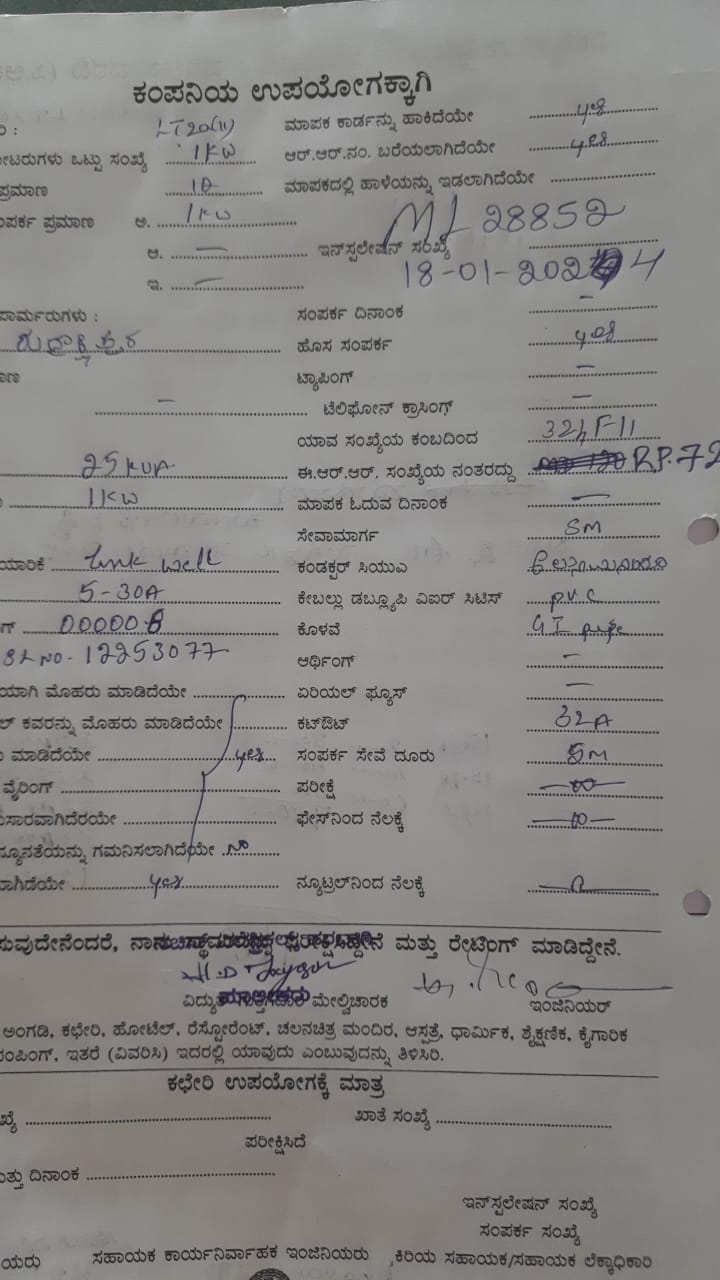 ಕಂಪನಿಯ ಉಪಯೋಗಕ್ಕಾಗಿ
ರಿ : LT20(11) ಮಾಪಕ ಕಾರ್ಡನ್ನು ಹಾಕಿದೆಯೇ yes
ೀಟರುಗಳು ಒಟ್ಟು ಸಂಖ್ಯೆ 1KW ಆರ್.ಆರ್.ನಂ. ಬರೆಯಲಾಗಿದೆಯೇ yes
ಪ್ರಮಾಣ 1A ಮಾಪಕದಲ್ಲಿ ಹಾಳೆಯನ್ನು ಇಡಲಾಗಿದೆಯೇ
ಂಪರ್ಕ ಪ್ರಮಾಣ ಅ. 1KW ML 28852
ಆ. — ಇನ್‌ಸ್ಪಲೇಷನ್ ಸಂಖ್ಯೆ
ಇ. — 18-01-2024
ಪಾರ್ಮರುಗಳು : ಸಂಪರ್ಕ ದಿನಾಂಕ —
ರುದ್ರಾಕ್ಷಿಪುರ ಹೊಸ ಸಂಪರ್ಕ yes
ಾಣ ಟ್ಯಾಪಿಂಗ್ —
— ಟೆಲಿಫೋನ್ ಕ್ರಾಸಿಂಗ್ —
ಯಾವ ಸಂಖ್ಯೆಯ ಕಂಬದಿಂದ F-11
25KVA ಈ.ಆರ್.ಆರ್. ಸಂಖ್ಯೆಯ ನಂತರದ್ದು RP.72
1KW ಮಾಪಕ ಓದುವ ದಿನಾಂಕ —
ಸೇವಾಮಾರ್ಗ 5M
ಯಾರಿಕೆ Link well ಕಂಡಕ್ಟರ್ ಸಿಯುಎ
5-30A ಕೇಬಲ್ಲು ಡಬ್ಲ್ಯೂಪಿ ವಿಐರ್ ಸಿಟಿಸ್ p.v.c
ಗ್ 00000 ಕೊಳವೆ GI pipe
SL NO. 12253077 ಆರ್ಥಿಂಗ್ —
ಯಾಗಿ ಮೊಹರು ಮಾಡಿದೆಯೇ ಏರಿಯಲ್ ಫ್ಯೂಸ್ —
ಲ್ ಕವರನ್ನು ಮೊಹರು ಮಾಡಿದೆಯೇ ಕಟ್‌ಔಟ್ 32A
ು ಮಾಡಿದೆಯೇ yes ಸಂಪರ್ಕ ಸೇವೆ ದೂರು 5M
ವೈರಿಂಗ್ ಪರೀಕ್ಷೆ
ಸಾರವಾಗಿದೆರಯೇ ಫೇಸ್‌ನಿಂದ ನೆಲಕ್ಕೆ
ನ್ಯೂನತೆಯನ್ನು ಗಮನಿಸಲಾಗಿದೆಯೇ No
ಾಗಿದೆಯೇ yes ನ್ಯೂಟ್ರಲ್‌ನಿಂದ ನೆಲಕ್ಕೆ
ಸುವುದೇನೆಂದರೆ, ಮತ್ತು ರೇಟಿಂಗ್ ಮಾಡಿದ್ದೇನೆ.
ವಿದ್ಯುತ್ ಮೇಲ್ವಿಚಾರಕ ಇಂಜಿನಿಯರ್
ಅಂಗಡಿ, ಕಛೇರಿ, ಹೋಟೆಲ್, ರೆಸ್ಟೋರೆಂಟ್, ಚಲನಚಿತ್ರ ಮಂದಿರ, ಆಸ್ಪತ್ರೆ, ಧಾರ್ಮಿಕ, ಶೈಕ್ಷಣಿಕ, ಕೈಗಾರಿಕ
ಂಪಿಂಗ್, ಇತರೆ (ವಿವರಿಸಿ) ಇದರಲ್ಲಿ ಯಾವುದು ಎಂಬುವುದನ್ನು ತಿಳಿಸಿರಿ.
ಕಛೇರಿ ಉಪಯೋಗಕ್ಕೆ ಮಾತ್ರ
ಖ್ಯೆ ಖಾತೆ ಸಂಖ್ಯೆ
ಪರೀಕ್ಷಿಸಿದೆ
ತ್ತು ದಿನಾಂಕ
ಇನ್‌ಸ್ಪಲೇಷನ್ ಸಂಖ್ಯೆ
ಸಂಪರ್ಕ ಸಂಖ್ಯೆ
ಯರು ಸಹಾಯಕ ಕಾರ್ಯನಿರ್ವಾಹಕ ಇಂಜಿನಿಯರು ಕಿರಿಯ ಸಹಾಯಕ/ಸಹಾಯಕ ಲೆಕ್ಕಾಧಿಕಾರಿ